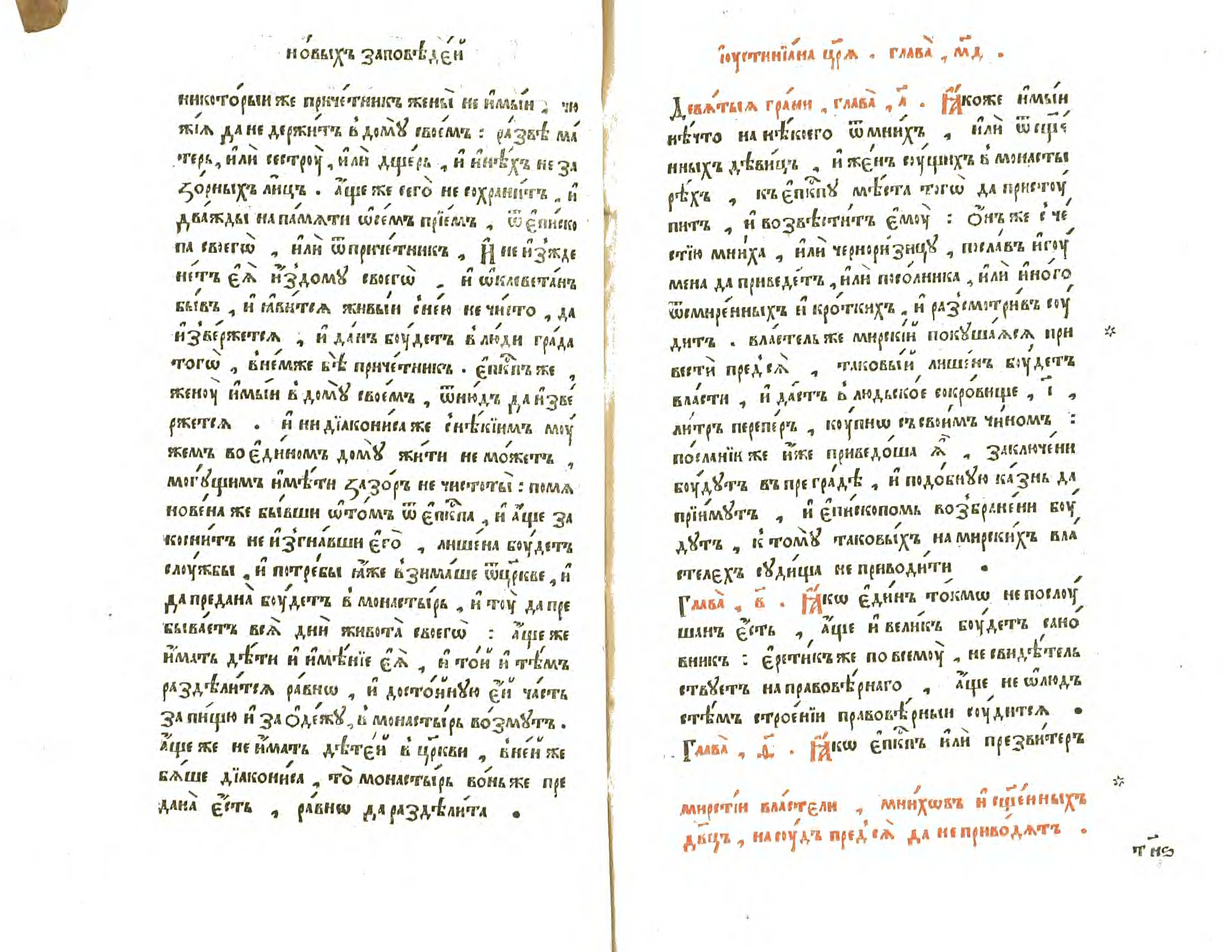 но́выхъ заповѣде́й
никото́рыи же приче́тникъ жены̀ не и҆мы́и , чю
жі́ѧ да не держи́тъ в̾ дому̀ свое́мъ : ра́звѣ ма́
терь, и҆лѝ сестроу̀, и҆лѝ дще́рь , и҆ и҆нѣ́хъ не за
ѕо́рныхъ ли́цъ . а҆́ще же сего̀ не сохрани́тъ , и҆
два́жды на па́мѧти ѡ҆ се́мъ прїе́мъ , ѿ є҆пи́ско
па своегѡ̀ , и҆лѝ ѿ приче́тникъ , И҆ не и҆зжде
не́тъ є҆ѧ̀ и҆з̾ дому своегѡ̀ , и҆ ѡ҆клевета́нъ
бы́въ , и҆ ꙗ҆ви́тсѧ живы́и с̾ не́ю не чи́сто , да
и҆зве́ржетсѧ , и҆ да́нъ боу́детъ в̾ лю́ди гра́да
тогѡ̀ , в̾ не́мже бѣ̀ приче́тникъ . є҆пⷭ҇кпъ же ,
женоу̀ и҆мы́и в̾ дому̀ свое́мъ , ѿню́дъ да и҆зве́
ржетсѧ . и҆ ни дїакони́са же с̾ нѣ́кїимъ моу́
жемъ во є҆ди́номъ дому̀ жи́ти не мо́жетъ ,
могу́щимъ и҆мѣ́ти ѕазо́ръ не чистоты̀ : помѧ
нове́на же бы́вши ѡ҆ то́мъ ѿ є҆пⷭ҇кпа , и҆ а҆́ще за
косни́тъ не и҆згна́вши є҆го̀ , лише́на боу́детъ
слоу́жбы , и҆ потре́бы ꙗ҆́же в̾зима́ше ѿ цр҃кве , и҆
да предана̀ боу́детъ в̾ монасты́рь , и҆ тоу̀ да пре
быва́етъ всѧ̀ днѝ живота̀ своегѡ̀ : а҆́ще же
и҆́мать дѣ́ти и҆ и҆мѣ́нїе є҆ѧ̀ , и҆ то́й и҆ тѣ́мъ
раздѣли́тсѧ ра́внѡ , и҆ досто́йную є҆́й ча́сть
за пи́щю и҆ за ѻ҆де́жу, в̾ монасты́рь во́змутъ .
а҆́ще же не и҆́мать дѣте́й в̾ цр҃кви , в̾ не́й же
бѧ́ше дїакони́са , то̀ монасты́рь во́ньже пре
дана̀ є҆́сть , ра́внѡ да раздѣли́та .
і҆оустинїа́на цр҃ѧ . глава̀ , м҃д .
Девѧ́тыѧ гра́ни , глава̀ , а҃ . Ꙗ҆́коже и҆мы́и
нѣ́что на нѣ́коего ѿ мни́хъ , и҆лѝ ѿ сщ҃е́
нныхъ дѣви́цъ , и҆ же́нъ соу́щихъ в̾ монасты
рѣ́хъ , къ є҆пⷭ҇кпу мѣ́ста тогѡ̀ да пристоу́
питъ , и҆ возвѣсти́тъ є҆моу̀ : ѻ҆́нъ же с̾ че́
стїю мни́ха , и҆лѝ чернори́зицу , посла́въ и҆гоу́
мена да приведе́тъ , и҆лѝ посо́лника , и҆лѝ и҆но́го
ѿ смире́нныхъ и҆ кро́ткихъ , и҆ разсмотри́въ соу́
дитъ . власте́ль же мирскі́й покуша́ѧсѧ при
вестѝ пред̾ сѧ̀ , таковы́й лише́нъ боу́детъ
вла́сти , и҆ да́стъ в̾ людьско́е сокро́вище , і҃ ,
ли́тръ пе́рперъ , коу́пнѡ съ свои́мъ чи́номъ :
по́сланїи же и҆̀же приведо́ша ѧ҆̀ , заключе́ни
боу́дутъ въ прегра́дѣ , и҆ подо́бную ка́знь да
прїи́мутъ , и҆ є҆пи́скопомь возбране́ни боу́
дутъ , к̾ тому̀ таковы́хъ на мирски́хъ вла
сте́лехъ суди́ща не приводи́ти .
Глава̀ , в҃ . Ꙗ҆́кѡ є҆ди́нъ то́кмѡ не послоу́
шанъ є҆́сть , а҆́ще и҆ вели́къ боу́детъ сано́
вникъ : є҆рети́къ же по всемоу̀ , не свидѣ́тель
ствуетъ на правовѣ́рнаго , а҆́ще не ѡ҆ лю́дъ
стѣ́мъ строе́нїи правовѣ́рныи соу́дитсѧ .
Глава̀ , г҃ . Ꙗ҆́кѡ є҆пⷭ҇кпъ и҆лѝ презви́теръ
мирсті́и власте́ли , мни́хѡвъ и҆ сщ҃е́нныхъ
дв҃цъ , на соу́дъ пред̾ сѧ̀ да не приво́дѧтъ .
т҃нѕ